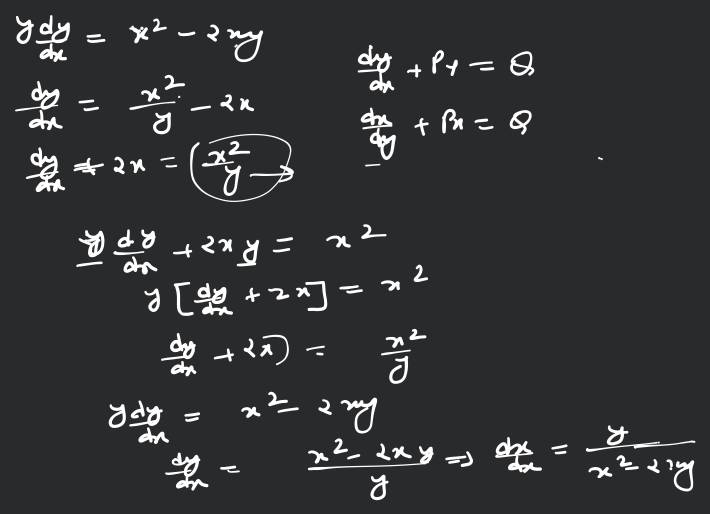 y dy/dx = x² - 2xy
dy/dx = x²/y - 2x
dy/dx + 2x = (x²/y) →
dy/dx + Py = Q
dx/dy + Px = Q
y dy/dx + 2xy = x²
y [dy/dx + 2x] = x²
dy/dx + 2x) = x²/y
y dy/dx = x² - 2xy
dy/dx = x² - 2xy / y ⇒ dx/dx = y / x² - 2xy